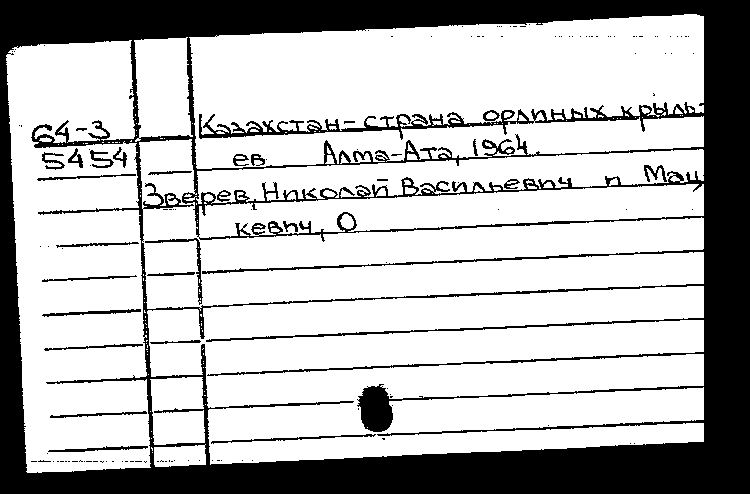 64-3 Казахстан-страна орлиных крыль-
5454 ев Алма-Ата, 1964.
Зверев, Николай Васильевич и Мац
кевич, О